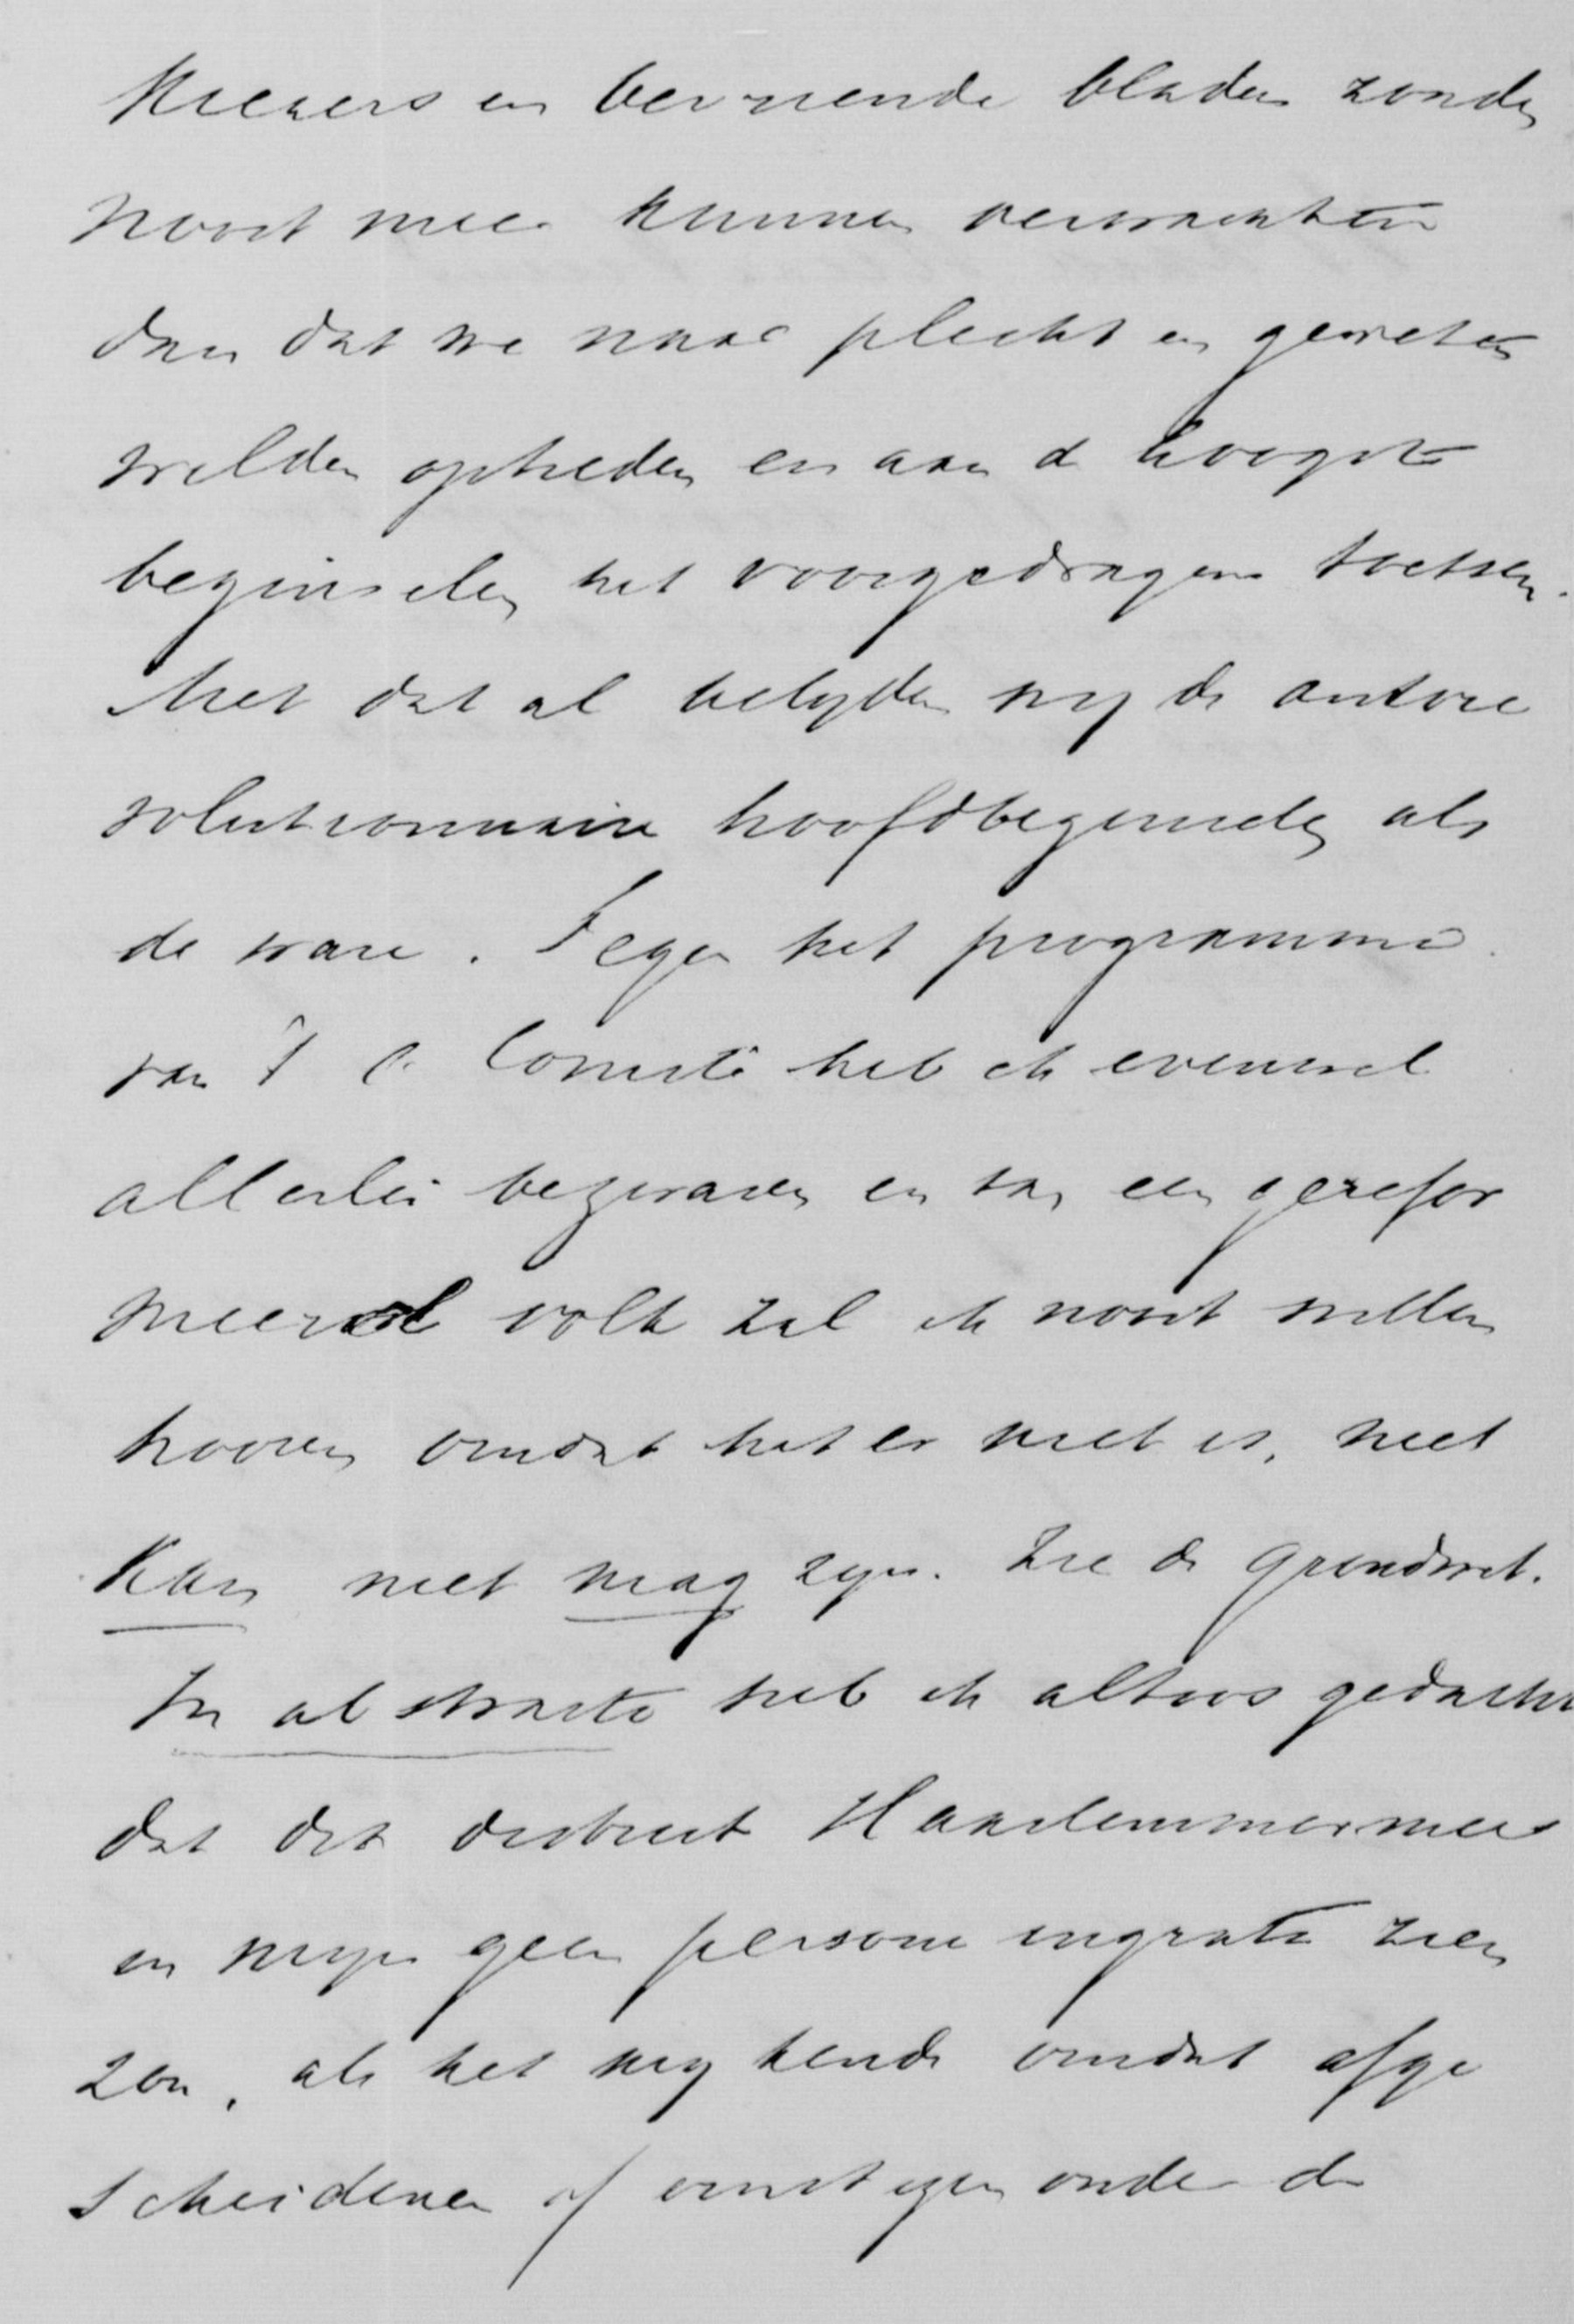 Kiezers en bevriende bladen zonden
nooit meer kunnen verwachten
dan dat we naar plicht en geweten
wilden optreden en aan d hoogste
beginselen het voorgedragene toetsen.
Met dat al belyden wy de antire
volutionnaire hoofdbeginselen als
de ware. Tegen het programma
van 't C. Comité heb ik evenwel
allerlei bezwaren en van een gerefor
meerd volk zal ik nooit willen
hooren omdat het er niet is, niet
kan niet mag zyn. Zie de grondwet.
In abstracto heb ik altoos gedacht
dat dit district Haarlemmermeer
in myn geen persona ingrata zien
zou, als het my kende omdat afge
scheidenen of ernstigen onder de